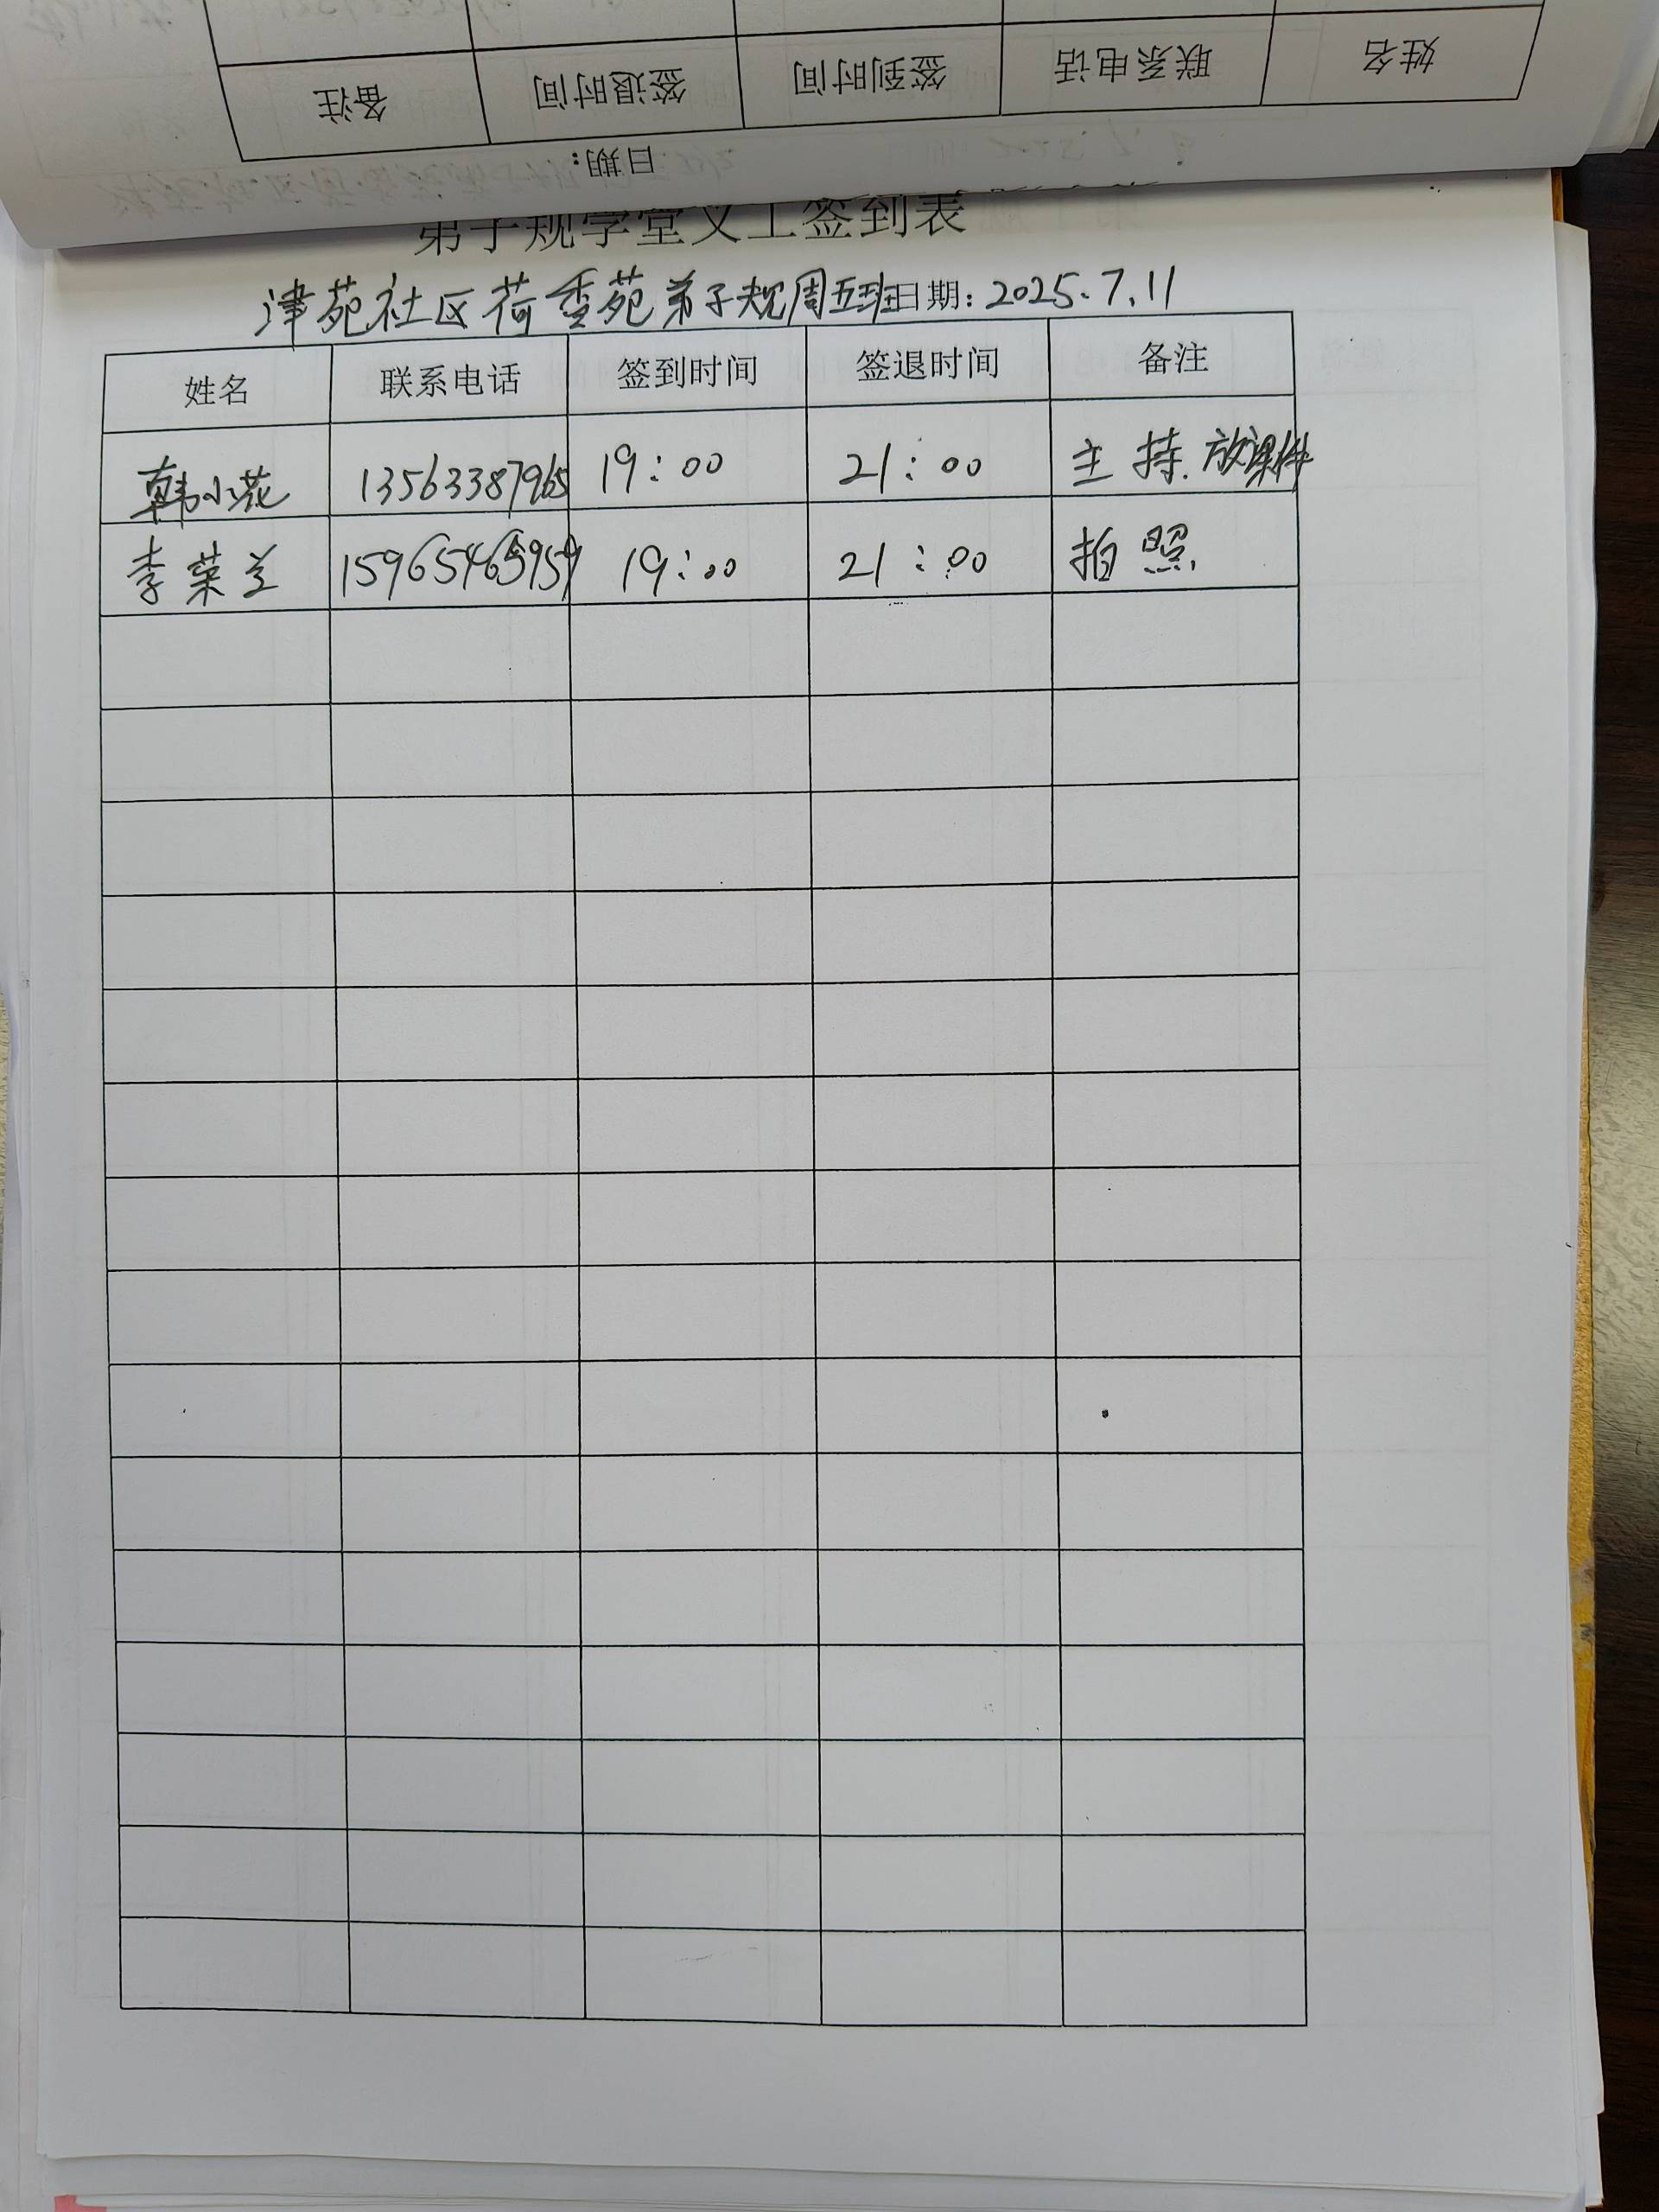 姓名 联系电话 签到时间 签退时间 备注
日期:
弟子规学堂义工签到表
津苑社区荷香苑弟子规周五班日期: 2025.7.11
姓名 联系电话 签到时间 签退时间 备注
韩小花 13563387965 19:00 21:00 主持.放课件
李荣兰 15965465959 19:00 21:00 拍照